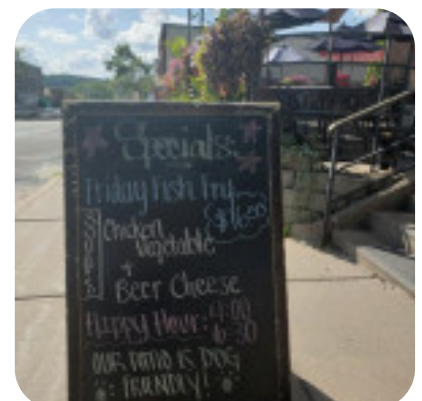 Specials:
Friday Fish Fry
$16.00
SOUPS
Chicken
Vegetable
+
Beer Cheese
Happy Hour: 4:00
6:30
OUR PATIO IS DOG
FRIENDLY!